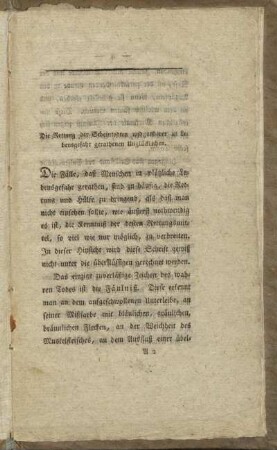 Die Rettung der Scheintodten und anderer in Le-
bensgefahr gerathenen Unglücklichen.
Die Fälle, daß Menschen in plötzliche Le-
bensgefahr gerathen, sind zu häufig, die Ret-
tung und Hülfe zu dringend, als daß man
nicht einsehen sollte, wie äußerst nothwendig
es ist, die Kenntniß der besten Rettungsmit-
tel, so viel wie nur möglich, zu verbreiten.
In dieser Hinsicht wird diese Schrift gewiß
nicht unter die überflüßigen gerechnet werden.
Das einzige zuverläßige Zeichen des wah-
ren Todes ist die Fäulniß. Diese erkennt
man an dem aufgeschwollenen Unterleibe, an
seiner Mißfarbe mit bläulichen, grünlichen,
bräunlichen Flecken, an der Weichheit des
Muskelfleisches, an dem Ausfluß einer übel-
A 2